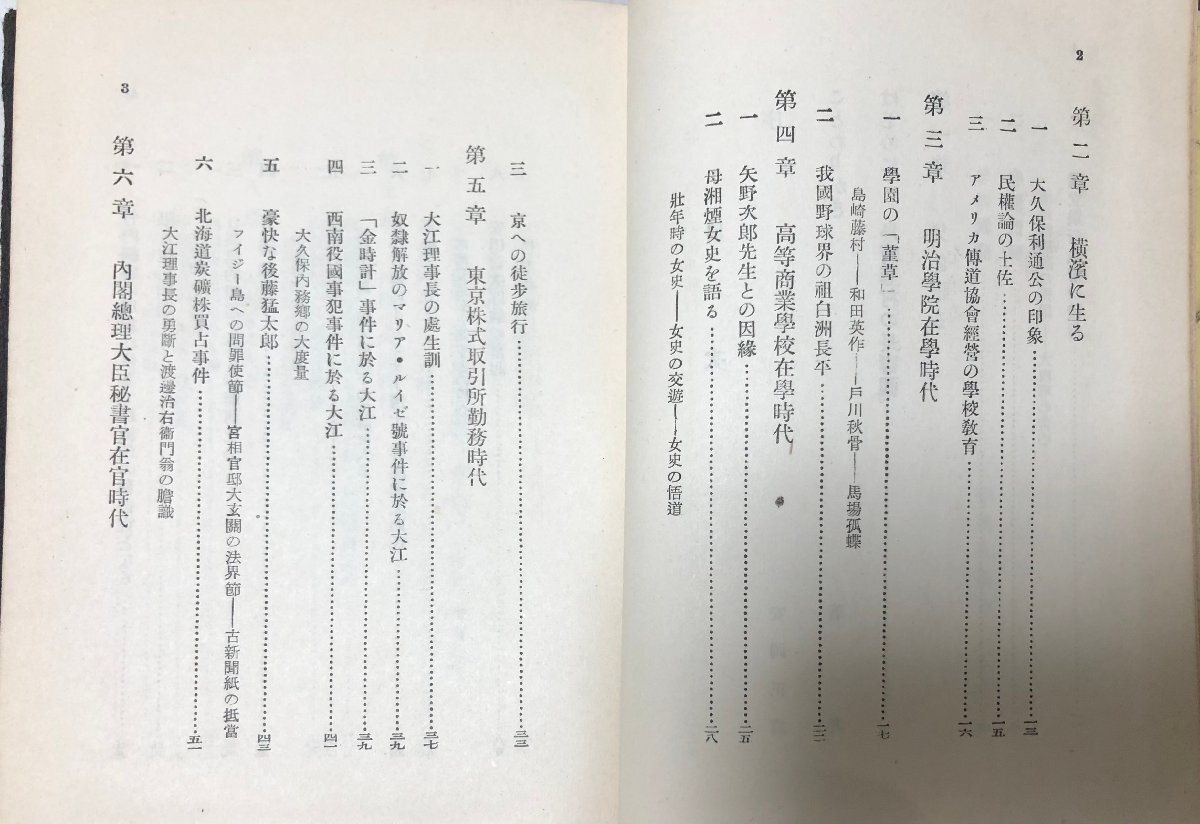 2
第二章　橫濱に生る
一　大久保利通公の印象…………一三
二　民權論の土佐…………一五
三　アメリカ傳道協會經營の學校敎育…………一六
第三章　明治學院在學時代
一　學園の「菫草」…………一七
島崎藤村――和田英作――戶川秋骨――馬場孤蝶
二　我國野球界の祖白洲長平…………二二
第四章　高等商業學校在學時代
一　矢野次郎先生との因緣…………二五
二　母湘煙女史を語る…………二八
壯年時の女史――女史の交遊――女史の悟道
三　京への徒步旅行…………三三
第五章　東京株式取引所勤務時代
一　大江理事長の處生訓…………三七
二　奴隸解放のマリア・ルイゼ號事件に於る大江…………三九
三　「金時計」事件に於る大江…………三九
四　西南役國事犯事件に於る大江…………四一
大久保內務鄉の大度量
五　豪快な後藤猛太郎…………四三
フイジー島への問罪使節――宮相官邸大玄關の法界節――古新聞紙の抵當
六　北海道炭礦株買占事件…………五一
大江理事長の勇斷と渡邊治右衞門翁の膽識
3
第六章　內閣總理大臣秘書官在官時代